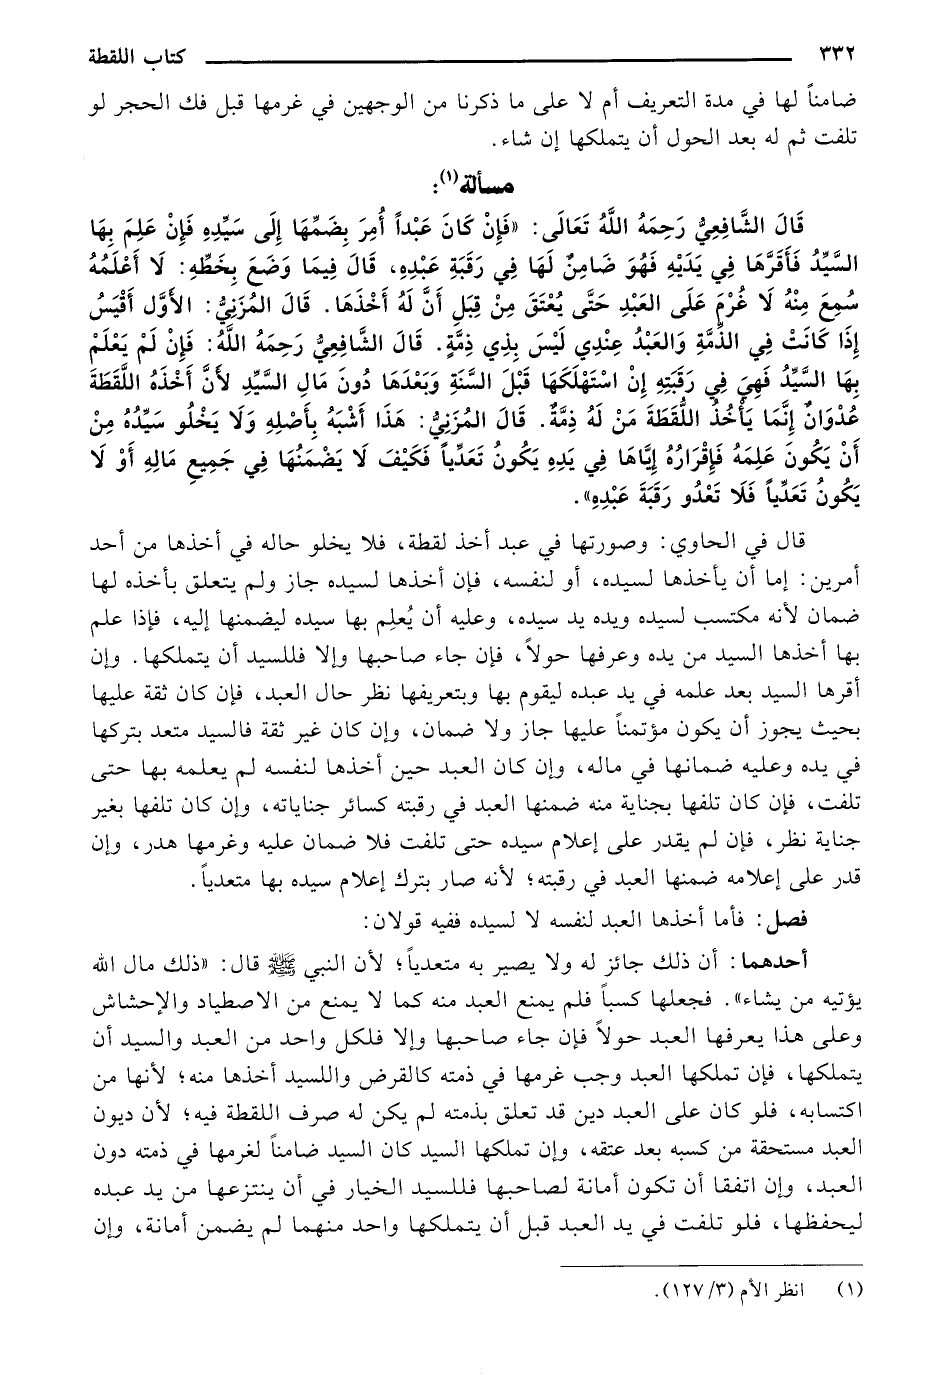 ٣٣٢ كتاب اللقطة
ضامناً لها في مدة التعريف أم لا على ما ذكرنا من الوجهين في غرمها قبل فك الحجر لو
تلفت ثم له بعد الحول أن يتملكها إن شاء.
مسألة(١):
قَالَ الشَّافِعِيُّ رَحِمَهُ اللَّهُ تَعَالَى: «فَإِنْ كَانَ عَبْداً أُمِرَ بِضَمِّهَا إِلَى سَيِّدِهِ فَإِنْ عَلِمَ بِهَا
السَّيِّدُ فَأَقَرَّهَا فِي يَدَيْهِ فَهُوَ ضَامِنٌ لَهَا فِي رَقَبَةِ عَبْدِهِ، قَالَ فِيمَا وَضَعَ بِخَطِّهِ: لَا أَعْلَمُهُ
سُمِعَ مِنْهُ لَا غُرْمَ عَلَى العَبْدِ حَتَّى يُعْتَقَ مِنْ قِبَلِ أَنَّ لَهُ أَخْذَهَا. قَالَ المُزَنِيُّ: الأَوَّل أَقْيَسُ
إِذَا كَانَتْ فِي الذِّمَّةِ وَالعَبْدُ عِنْدِي لَيْسَ بِذِي ذِمَّةٍ. قَالَ الشَّافِعِيُّ رَحِمَهُ اللَّهُ: فَإِنْ لَمْ يَعْلَمْ
بِهَا السَّيِّدُ فَهِيَ فِي رَقَبَتِهِ إِنْ اسْتَهْلَكَهَا قَبْلَ السَّنَةِ وَبَعْدَهَا دُونَ مَالِ السَّيِّدِ لأَنَّ أَخْذَهُ اللُّقَطَةَ
عُدْوَانٌ إِنَّمَا يَأْخُذُ اللُّقَطَةَ مَنْ لَهُ ذِمَّةٌ. قَالَ المُزَنِيُّ: هَذَا أَشْبَهُ بِأَصْلِهِ وَلَا يَخْلُو سَيِّدُهُ مِنْ
أَنْ يَكُونَ عَلِمَهُ فَإِقْرَارُهُ إِيَّاهَا فِي يَدِهِ يَكُونُ تَعَدِّياً فَكَيْفَ لَا يَضْمَنُهَا فِي جَمِيعِ مَالِهِ أَوْ لَا
يَكُونُ تَعَدِّياً فَلَا تَعْدُو رَقَبَةَ عَبْدِهِ».
قال في الحاوي: وصورتها في عبد أخذ لقطة، فلا يخلو حاله في أخذها من أحد
أمرين: إما أن يأخذها لسيده، أو لنفسه، فإن أخذها لسيده جاز ولم يتعلق بأخذه لها
ضمان لأنه مكتسب لسيده ويده يد سيده، وعليه أن يُعلِم بها سيده ليضمنها إليه، فإذا علم
بها أخذها السيد من يده وعرفها حولاً، فإن جاء صاحبها وإلا فللسيد أن يتملكها. وإن
أقرها السيد بعد علمه في يد عبده ليقوم بها وبتعريفها نظر حال العبد، فإن كان ثقة عليها
بحيث يجوز أن يكون مؤتمناً عليها جاز ولا ضمان، وإن كان غير ثقة فالسيد متعد بتركها
في يده وعليه ضمانها في ماله، وإن كان العبد حين أخذها لنفسه لم يعلمه بها حتى
تلفت، فإن كان تلفها بجناية منه ضمنها العبد في رقبته كسائر جناياته، وإن كان تلفها بغير
جناية نظر، فإن لم يقدر على إعلام سيده حتى تلفت فلا ضمان عليه وغرمها هدر، وإن
قدر على إعلامه ضمنها العبد في رقبته؛ لأنه صار بترك إعلام سيده بها متعدياً.
فصل: فأما أخذها العبد لنفسه لا لسيده ففيه قولان:
أحدهما: أن ذلك جائز له ولا يصير به متعدياً؛ لأن النبي ﷺ قال: «ذلك مال الله
يؤتيه من يشاء». فجعلها كسباً فلم يمنع العبد منه كما لا يمنع من الاصطياد والإحشاش
وعلى هذا يعرفها العبد حولاً فإن جاء صاحبها وإلا فلكل واحد من العبد والسيد أن
يتملكها، فإن تملكها العبد وجب غرمها في ذمته كالقرض واللسيد أخذها منه؛ لأنها من
اكتسابه، فلو كان على العبد دين قد تعلق بذمته لم يكن له صرف اللقطة فيه؛ لأن ديون
العبد مستحقة من كسبه بعد عتقه، وإن تملكها السيد كان السيد ضامناً لغرمها في ذمته دون
العبد، وإن اتفقا أن تكون أمانة لصاحبها فللسيد الخيار في أن ينتزعها من يد عبده
ليحفظها، فلو تلفت في يد العبد قبل أن يتملكها واحد منهما لم يضمن أمانة، وإن
(١) انظر الأم (٣/ ١٢٧).